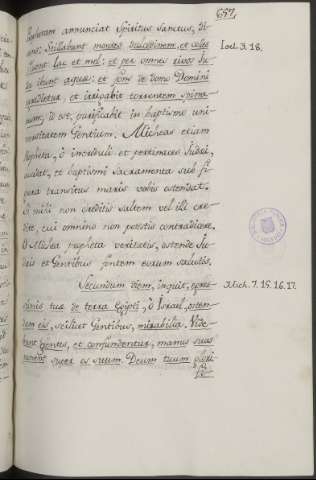 657.
Prophetam annunciat Spiritus Sanctus, di-
cens: Stillabunt montes dulcedinem, et colles Joel. 3. 18.
fluent lac et mel; et per omnes rivos Ju-
da ibunt aquæ: et fons de domo Domini
egredietur, et irrigabit torrentem spina-
rum; id est, purificabit in baptismo uni-
versitatem Gentium. Micheas etiam
Propheta, ò increduli et pertinaces Judæi,
audiat, et baptismi Sacramenta sub fi-
gura transitus maris vobis ostendat.
Si mihi non creditis saltem vel illi cre-
dite, cui omnino non potestis contradicere.
O Michea propheta veritatis, ostende Ju-
dæis et Gentibus fontem eorum salutis.
Secundum diem, inquit, egres- Mich. 7. 15. 16. 17.
sionis tuæ de terra Egipti, ò Israel, osten-
dam eis, scilicet Gentibus, mirabilia. Vide-
bunt Gentes, et confundentur, manus suas
ponent super os suum. Deum tuum